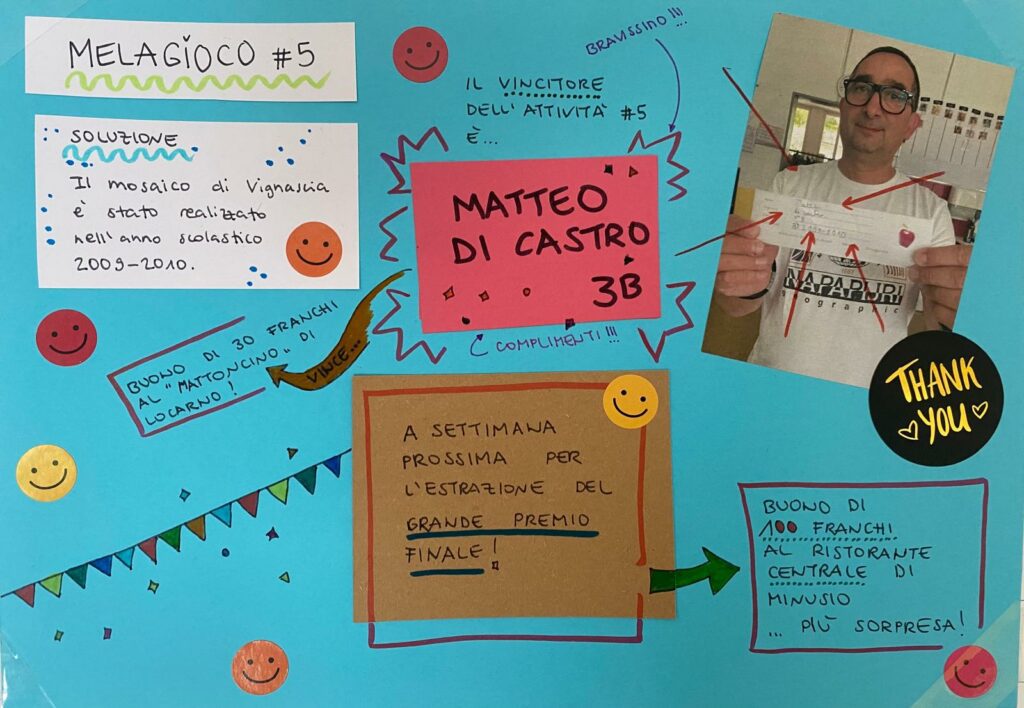 MELAGIOCO #5
SOLUZIONE
Il mosaico di Vignascia
è stato realizzato
nell'anno scolastico
2009-2010.
BRAVISSIMO!!!
IL VINCITORE
DELL'ATTIVITÀ #5
È...
MATTEO
DI CASTRO
3B
COMPLIMENTI!!!
VINCE...
BUONO DI 30 FRANCHI
AL "MATTONCINO" DI
LOCARNO!
A SETTIMANA
PROSSIMA PER
L'ESTRAZIONE DEL
GRANDE PREMIO
FINALE!
BUONO DI
100 FRANCHI
AL RISTORANTE
CENTRALE DI
MINUSIO
... PIÙ SORPRESA!
NAPAPIJRI
geographic
THANK
YOU